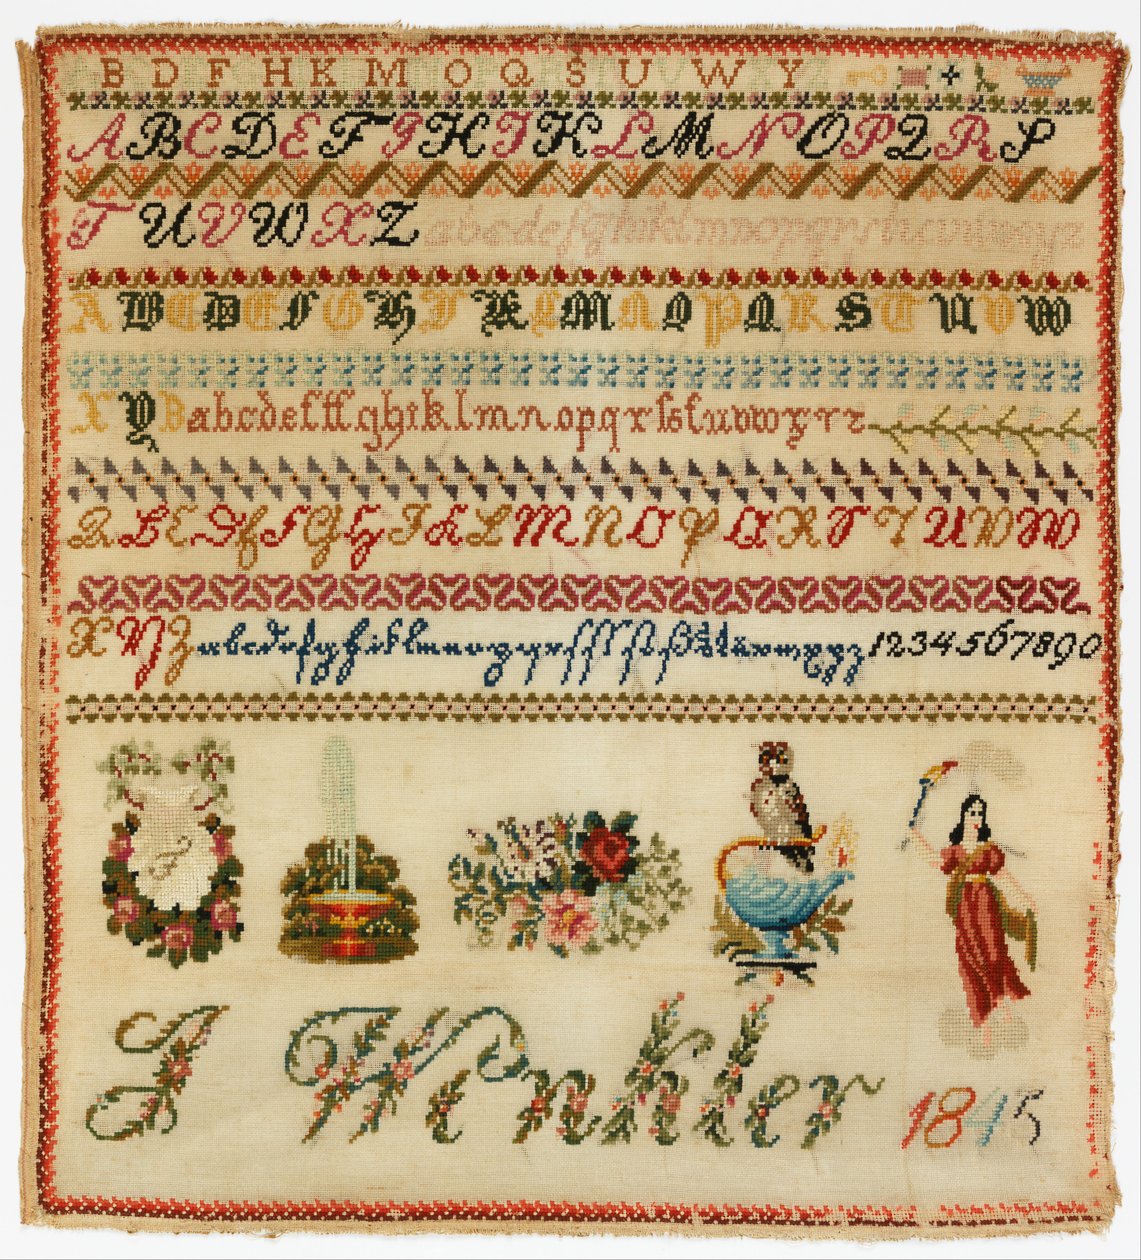 B D F H K M O Q S U W Y
A B C D E F G H I K L M N O P Q R S
T U V W X Z a b c d e f g h i k l m n o p q r s t u v w x y z
A B C D E F G H I K L M N O P Q R S T U V W
X Y Z a b c d e f ff g h i k l m n o p q r ſ s t u v w x y z
A B C D E F G H I K L M N O P Q R S T U V W
X Y Z a b c d e f g h i k l m n o p q r 1 2 3 4 5 6 7 8 9 0
J Winkler 1845